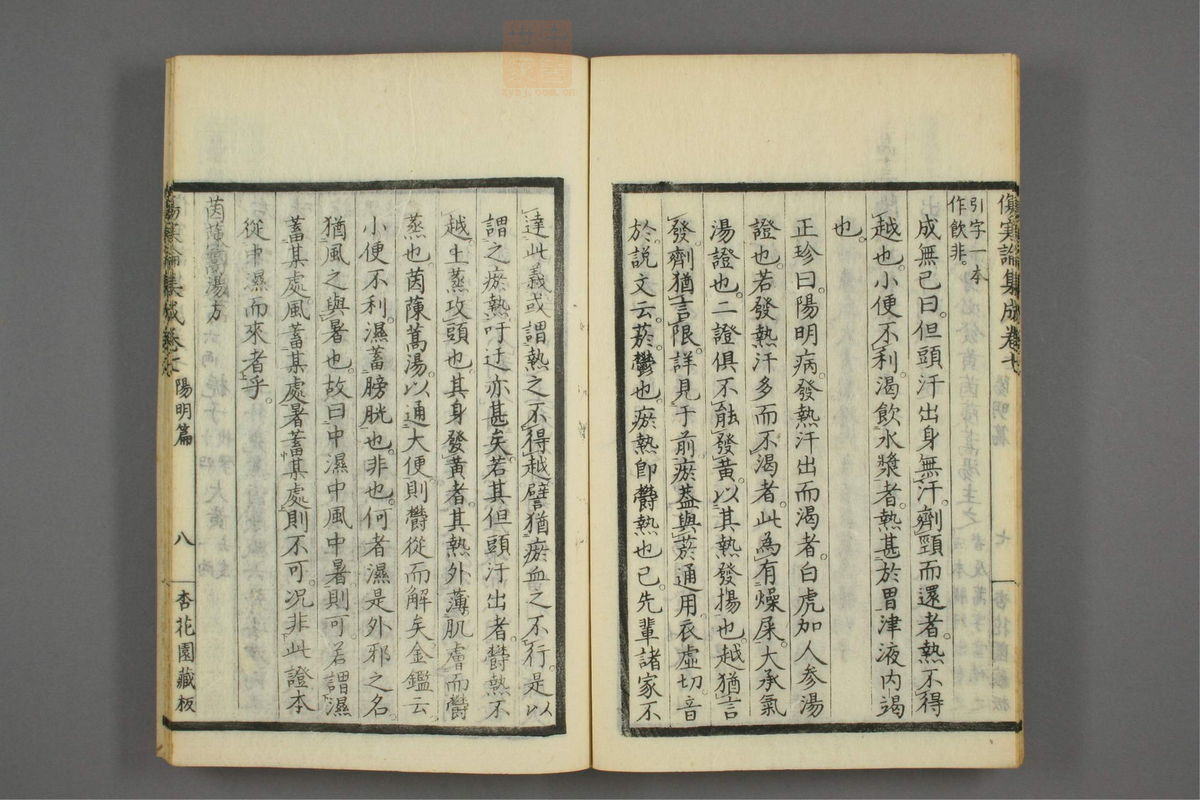 傷寒論集成卷七
引字一本
作飲非。
成無己曰。但頭汗出身無汗。劑頸而還者。熱不得
越也。小便不利。渴飲水漿者。熱甚於胃津液內竭
也。
正珍曰。陽明病。發熱汗出而渴者。白虎加人參湯
證也。若發熱汗多而不渴者。此為有燥屎。大承氣
湯證也。二證俱不能發黃。以其熱發揚也。越猶言
發。劑猶言限。詳見于前。瘀蓋與菸通用。衣虛切。音
於。說文云。菸。鬱也。瘀熱即鬱熱也已。先輩諸家不
達此義。或謂熱之不得越。譬猶瘀血之不行。是以
謂之瘀熱。吁迂亦甚矣。若其但頭汗出者。鬱熱不
越。上蒸攻頭也。其身發黃者。其熱外薄肌膚而鬱
蒸也。茵蔯蒿湯。以通大便。則鬱從而解矣。金鑑云。
小便不利。濕蓄膀胱也。非也。何者。濕是外邪之名。
猶風之與暑也。故曰中濕中風中暑則可。若謂濕
蓄某處。風蓄某處。暑蓄某處。則不可。況非此證本
從中濕而來者乎。
茵蔯蒿湯方
陽明篇
八
杏花園藏板